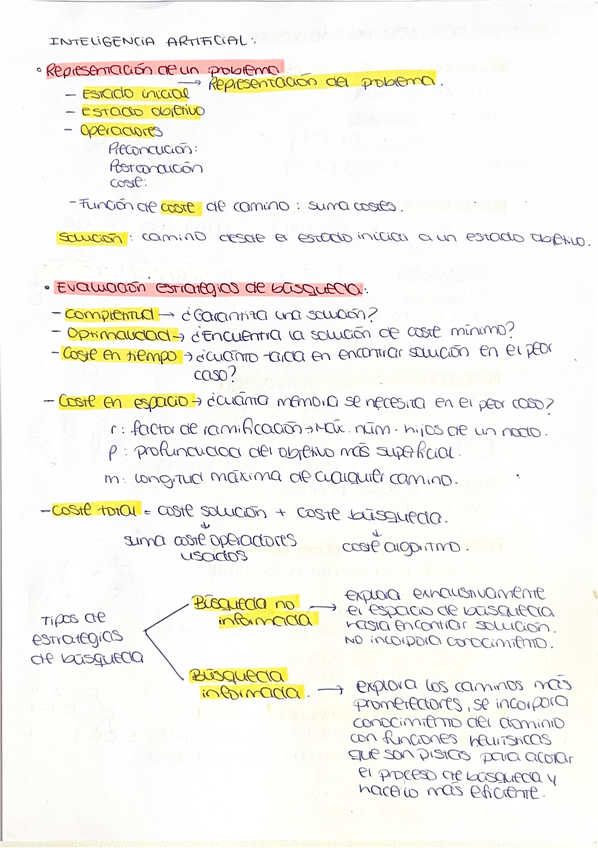 INTELIGENCIA ARTIFICIAL:
• Representación de un problema
→ Representación del problema.
- Estado inicial
- Estado objetivo
- Operadores
Precondición:
Postcondición
Coste:
- Función de coste de camino : suma costes.
Solución : camino desde el estado inicial a un estado objetivo.
• Evaluación estrategias de búsqueda:
- Completitud → ¿Garantiza una solución?
- Optimalidad → ¿Encuentra la solución de coste mínimo?
- Coste en tiempo → ¿cuánto tarda en encontrar solución en el peor
caso?
- Coste en espacio → ¿cuánta memoria se necesita en el peor caso?
r : factor de ramificación → Máx. núm. hijos de un nodo.
p : profundidad del objetivo más superficial.
m : longitud máxima de cualquier camino.
- Coste total = coste solución + coste búsqueda.
↓ ↓
suma coste operadores coste algoritmo.
usados
Tipos de
estrategias
de búsqueda
Búsqueda no
informada
→ explora exhaustivamente
el espacio de búsqueda
hasta encontrar solución.
No incorpora conocimiento.
Búsqueda
informada.
→ explora los caminos más
prometedores, se incorpora
conocimiento del dominio
con funciones heurísticas
que son pistas para acotar
el proceso de búsqueda y
hacerlo más eficiente.